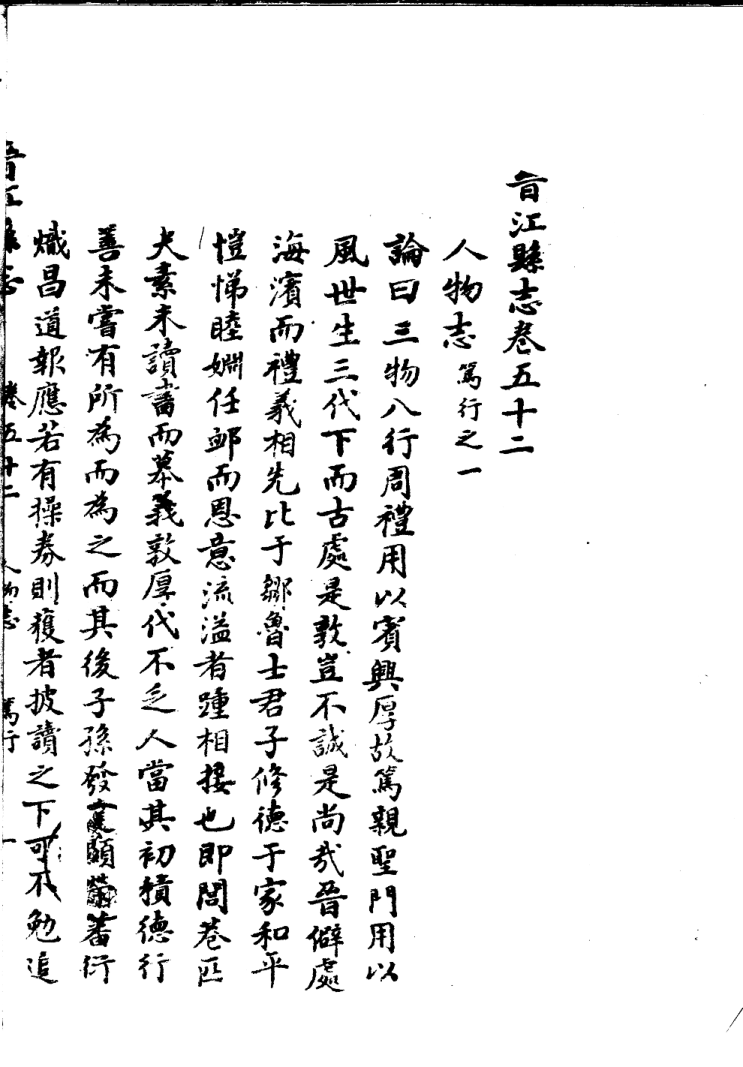 晉江縣志卷五十二
人物志 篤行之一
論曰三物八行周禮用以賓興厚故篤親聖門用以
風世生三代下而古處是敦豈不誠是尚哉晉僻處
海濱而禮義相先比于鄒魯士君子修德于家和平
愷悌睦婣任卹而恩意流溢者踵相接也即閭巷匹
夫素未讀書而慕義敦厚代不乏人當其初積德行
善未嘗有所為而為之而其後子孫發顯榮蕃衍
熾昌道報應若有操券則獲者披讀之下可不勉追
晉江縣志 卷五十二 人物志 篤行 一